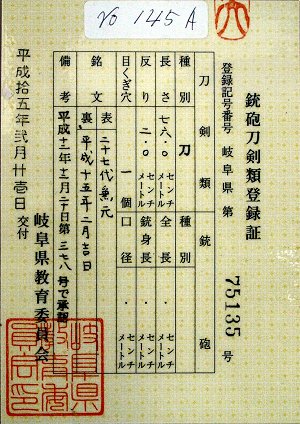 No 145A
銃砲刀剣類登録証
登録記号番号 岐阜県 第 75135 号
刀剣類 銃砲
種別 刀 種別
長さ 七六.〇 センチメートル 全長 . センチメートル
反り 二.〇 センチメートル 銃身長 . センチメートル
目くぎ穴 一個 口径 . センチメートル
銘文 表 二十七代兼元
裏 平成十五年二月吉日
備考 平成十二年十二月二十日第三七八号で承認
平成拾五年弐月廿壱日 交付
岐阜県教育委員会